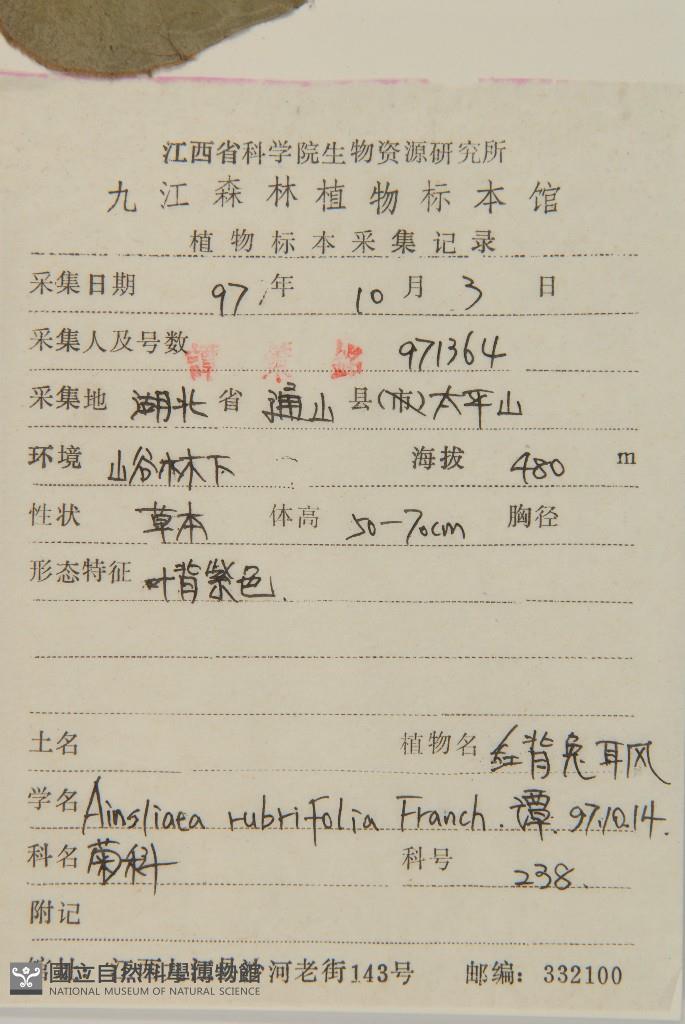 江西省科学院生物资源研究所
九江森林植物标本馆
植物标本采集记录
采集日期 97年 10月 3日
采集人及号数 譚策銘 971364
采集地 湖北省 通山县(市)太平山
环境 山谷林下 海拔 480 m
性状 草本 体高 50-70cm 胸径
形态特征 叶背紫色.
土名 植物名 红背兔耳风
学名 Ainsliaea rubrifolia Franch. 谭. 97.10.14.
科名 菊科 科号 238.
附记
河老街143号 邮编: 332100
國立自然科學博物館
NATIONAL MUSEUM OF NATURAL SCIENCE